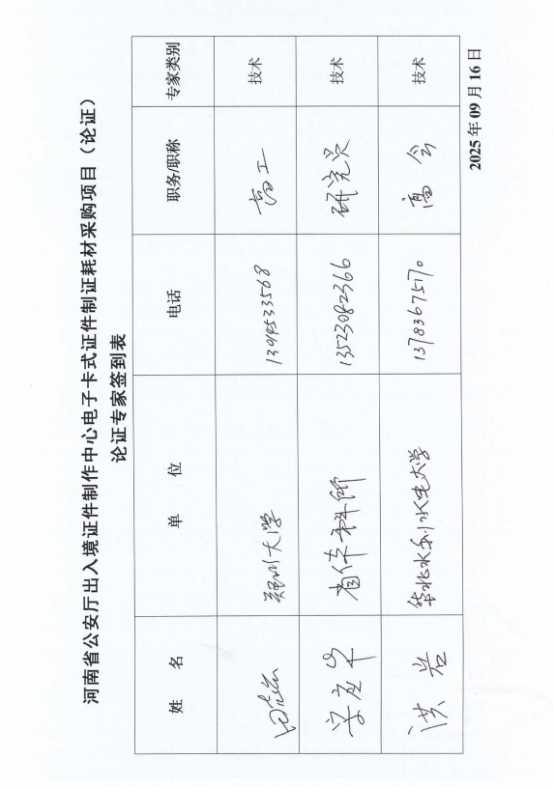 河南省公安厅出入境证件制作中心电子卡式证件制证耗材采购项目（论证）
论证专家签到表
姓 名 单 位 电话 职务/职称 专家类别
郑州大学 13949533568 高工 技术
李彦华 省体科所 13523082366 研究员 技术
洪岩 华北水利水电大学 13783675170 高会 技术
2025年09月16日